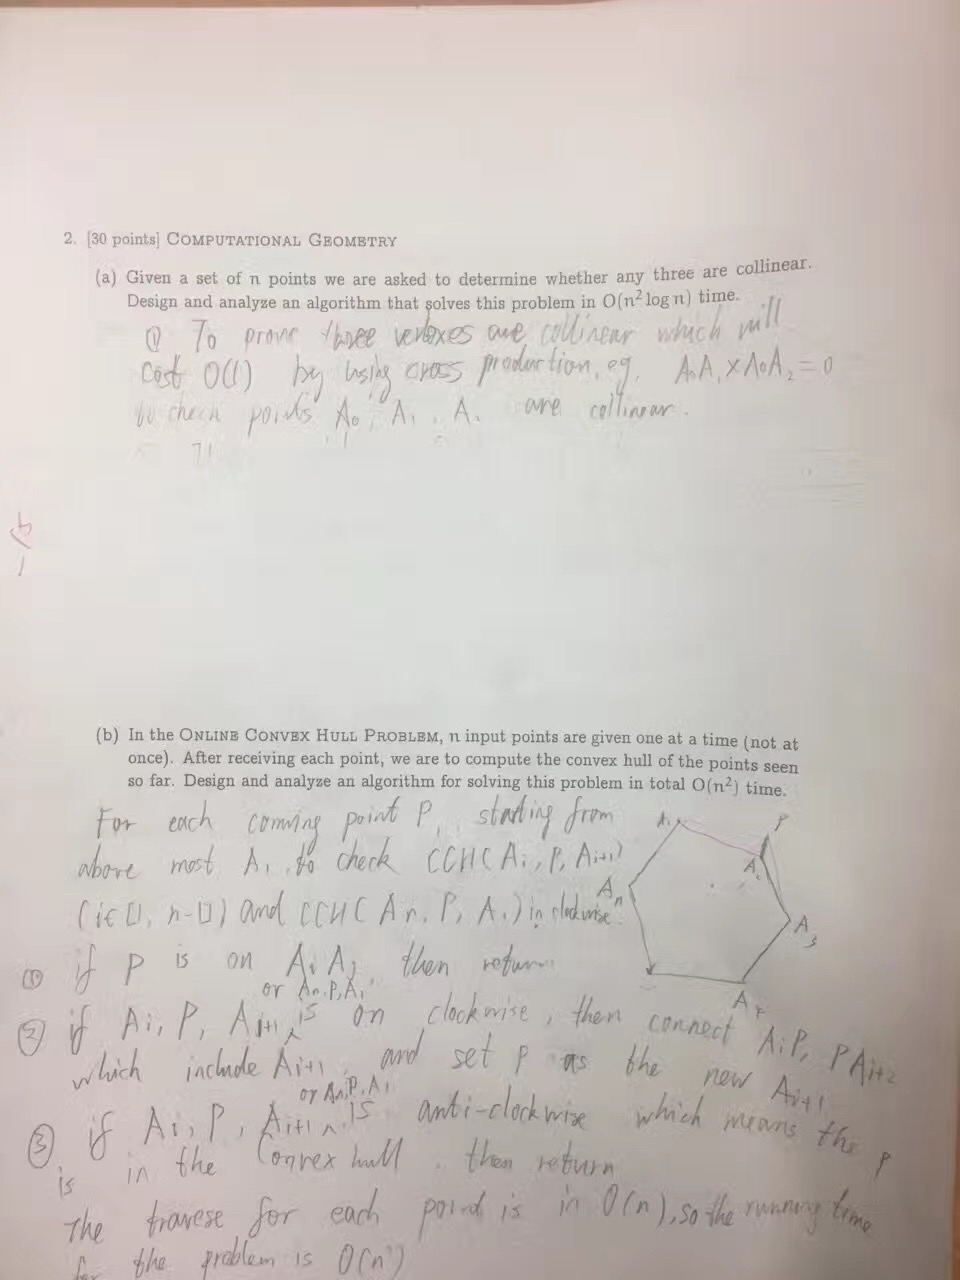 2. [30 points] COMPUTATIONAL GEOMETRY
(a) Given a set of n points we are asked to determine whether any three are collinear.
Design and analyze an algorithm that solves this problem in O(n² log n) time.
① To prove three vertexes are collinear which will
cost O(1) by using cross production, eg. A₀A₁×A₀A₂=0
to check points A₀, A₁, A₂ are collinear.
(b) In the ONLINE CONVEX HULL PROBLEM, n input points are given one at a time (not at
once). After receiving each point, we are to compute the convex hull of the points seen
so far. Design and analyze an algorithm for solving this problem in total O(n²) time.
For each coming point P, starting from
above most A₁, to check CCH(Ai, P, Ai+1)
(i∈[1, n-1]) and CCH(An, P, A₁) in clockwise
A₁ P
A₂
An
A₃
A₄
① if P is on AiAj, then return
or An,P,A₁
② if Ai, P, Ai+1 is on clockwise, then connect AiP, PAi+2
which include Ai+1, and set P as the new Ai+1
or An,P,A₁
③ if Ai, P, Ai+1 is anti-clockwise which means the P
is in the Convex hull, then return
The travese for each point is in O(n), so the running time
for the problem is O(n²)